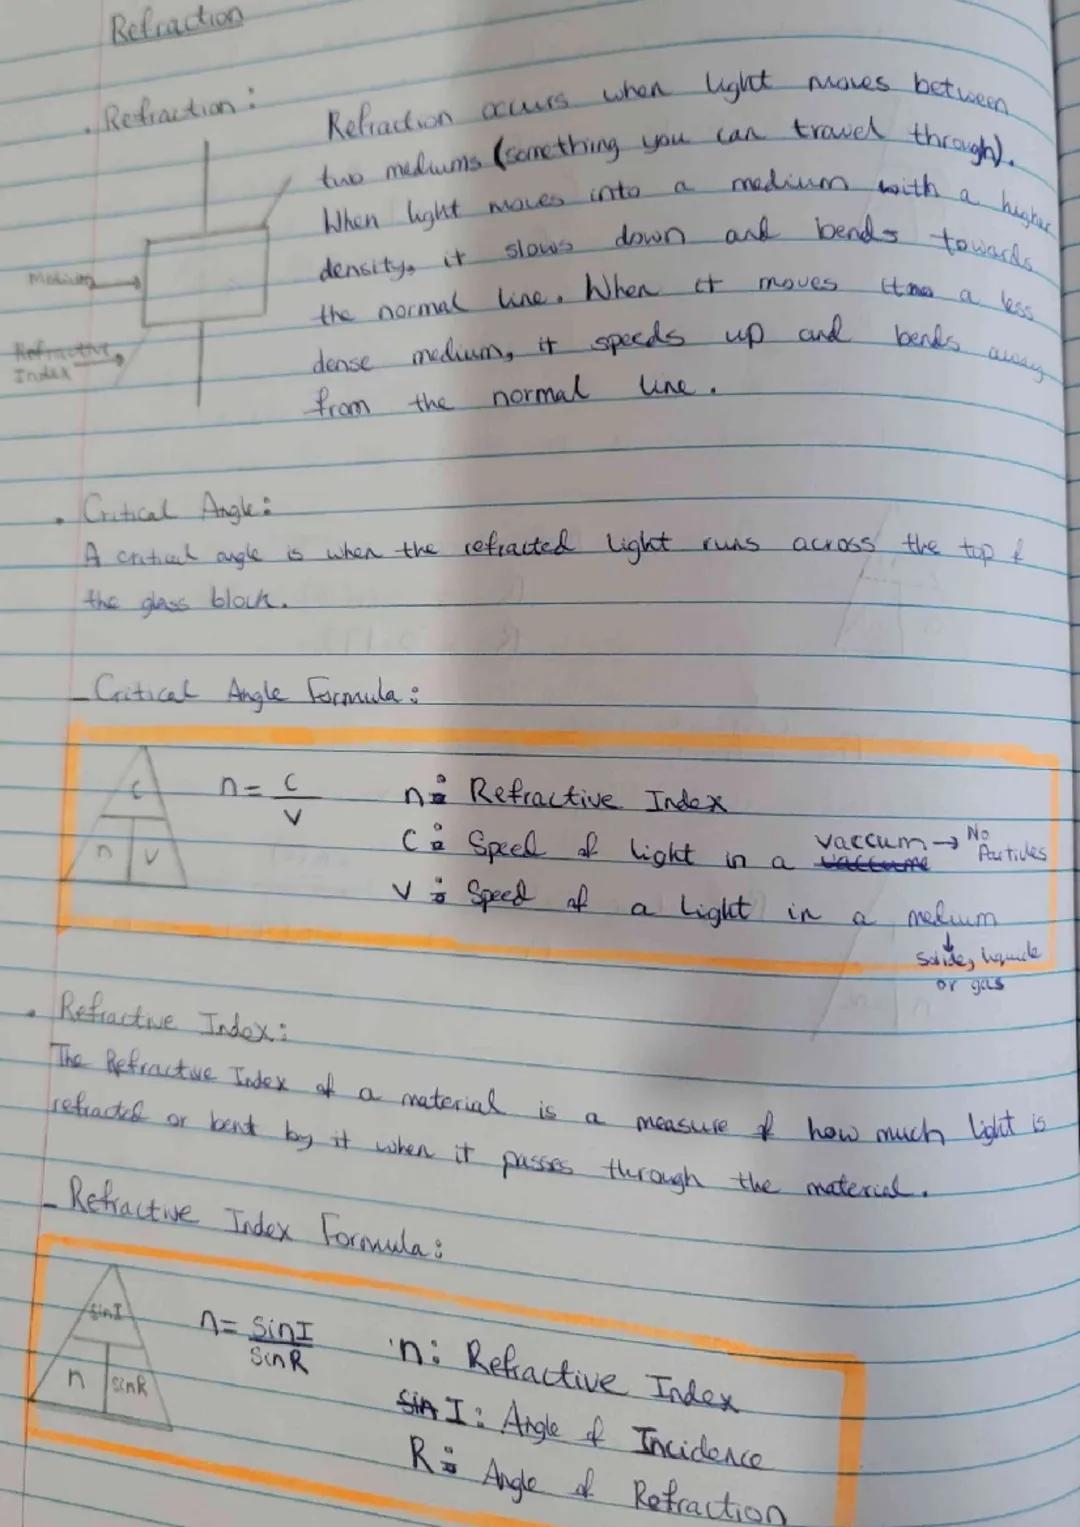 Refraction
Refraction:
Refraction occurs when light moves between
two mediums (something you can travel through).
When light moves into a medium with a higher
density, it slows down and bends towards
the normal line. When it moves a less
dense medium, it speeds up and bends away
from the normal line.
Medium
Refractive
Index
Critical Angle:
A critical angle is when the refracted light runs across the top of
the glass block.
- Critical Angle Formula:
C
n V
n = C
V
n: Refractive Index
C: Speed of light in a vaccum → No
Particles
V: Speed of a Light in a medium
Solide, liquide
or gas
Refractive Index:
The Refractive Index of a material is a measure of how much light is
refracted or bent by it when it passes through the material.
- Refractive Index Formula:
sinI
n sinR
n = sinI
sinR
n: Refractive Index
I: Angle of Incidence
R: Angle of Refraction